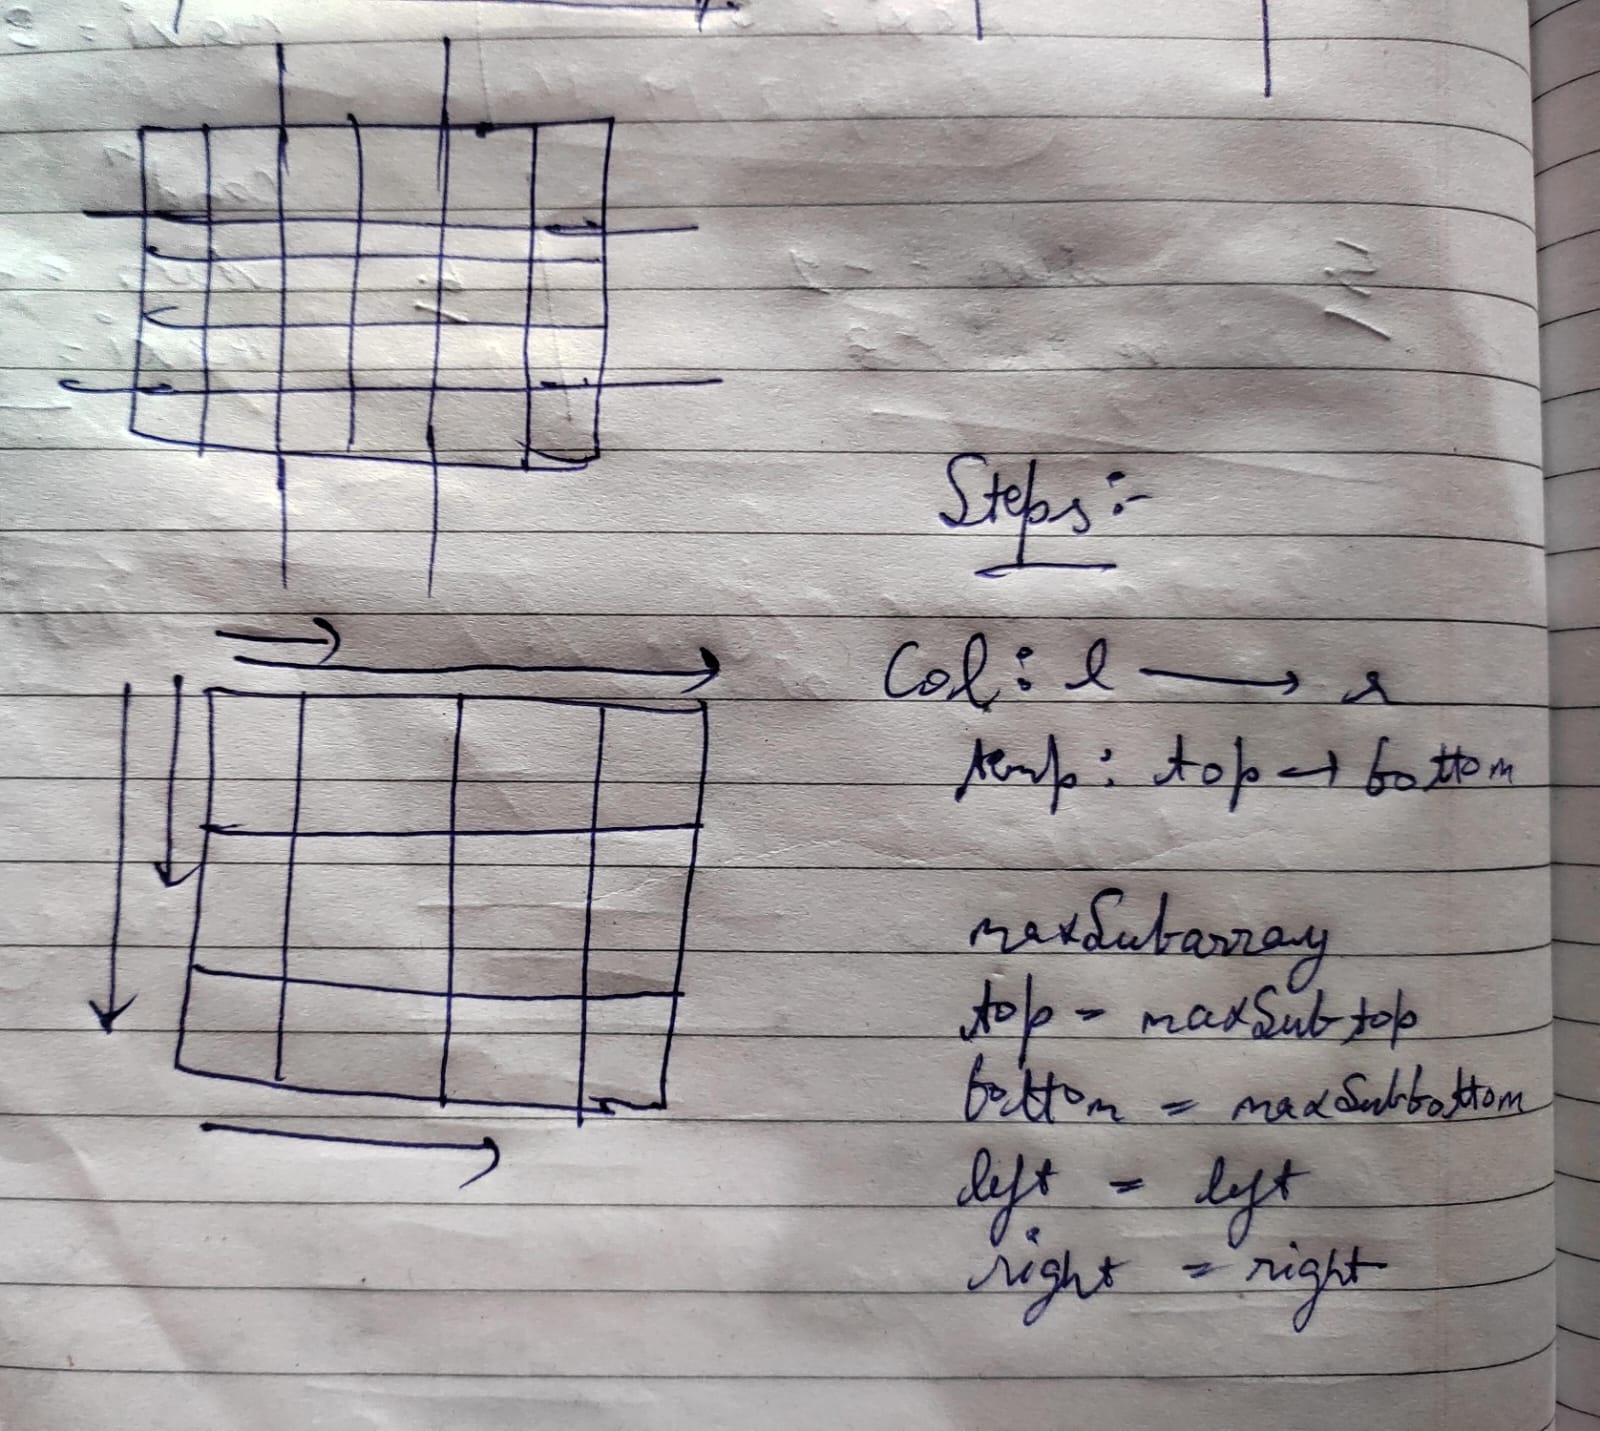 Steps :-
Col : l → r
temp : top → bottom
maxSubarray
top = maxSubtop
bottom = maxSubbottom
left = left
right = right